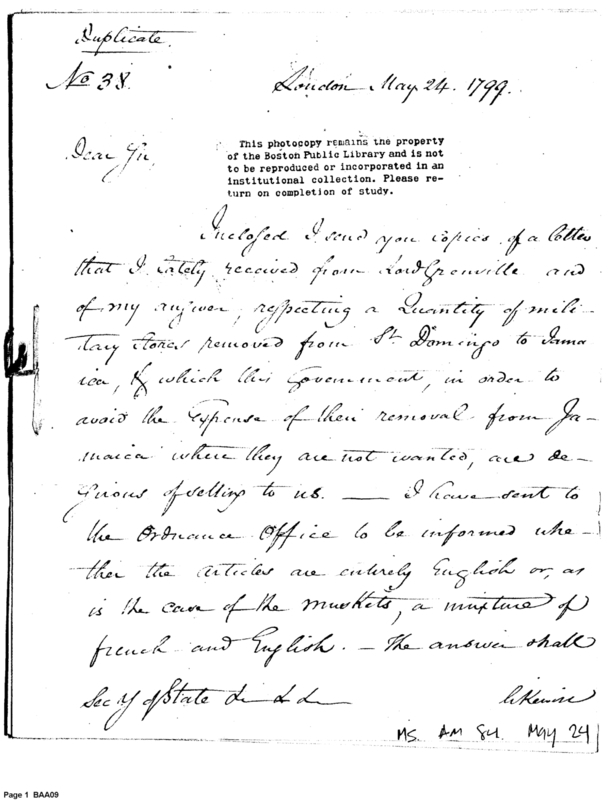 Duplicate.
No 38.
London May 24. 1799.
Dear Sir,
This photocopy remains the property
of the Boston Public Library and is not
to be reproduced or incorporated in an
institutional collection. Please re-
turn on completion of study.
Inclosed I send you copies of a letter
that I lately received from Lord Grenville and
of my answer, respecting a Quantity of mili-
tary stores removed from St. Domingo to Jama
ica, & which this Government, in order to
avoid the Expense of their removal from Ja-
maica where they are not wanted, are de-
sirous of selling to us. — I have sent to
the Ordnance Office to be informed whe-
ther the articles are entirely English or, as
is the case of the muskets, a mixture of
french and English. — The answer shall
Secy of State
likewise
MS. AM 84. May 24
Page 1 BAA09